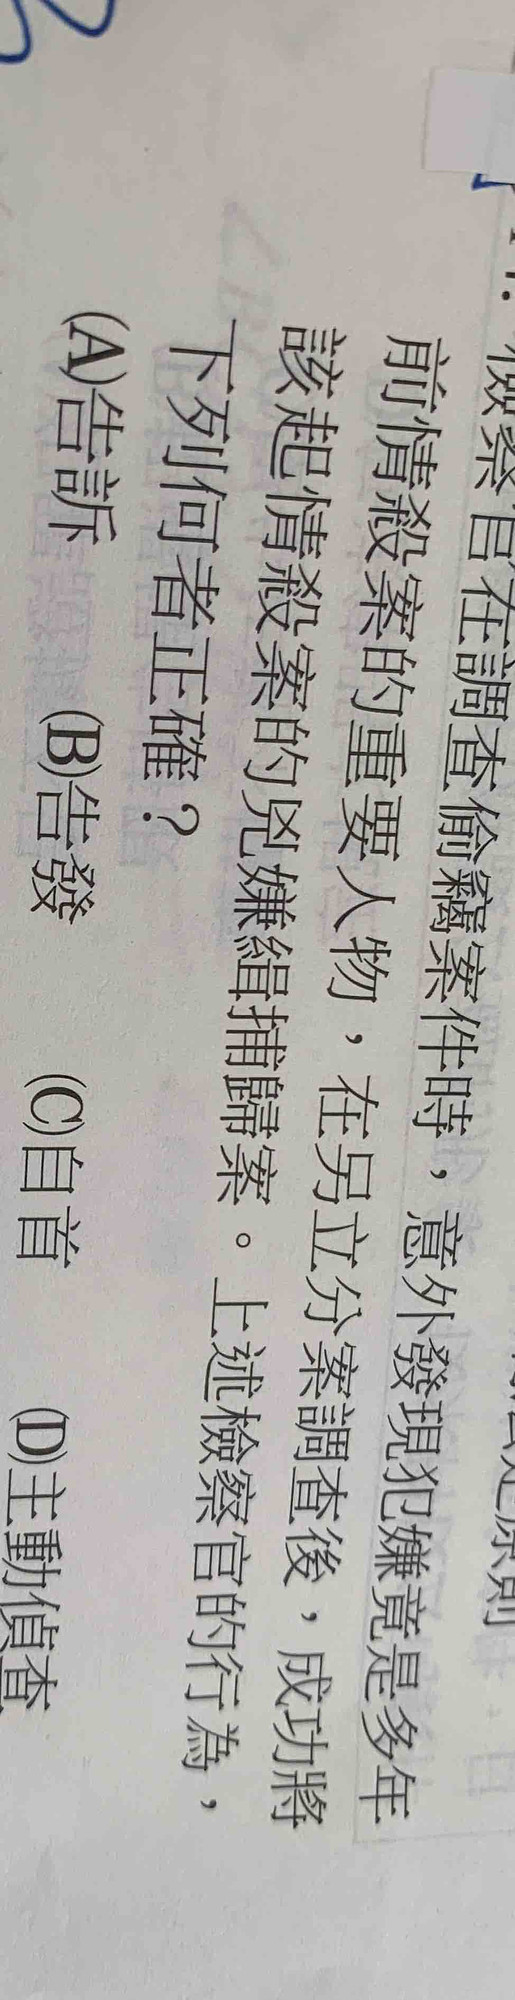 檢察官在調查偷竊案件時，意外發現犯嫌竟是多年
前情殺案的重要人物，在另立分案調查後，成功將
該起情殺案的兇嫌緝捕歸案。上述檢察官的行為，
下列何者正確？
(A)告訴 (B)告發 (C)自首 (D)主動偵查